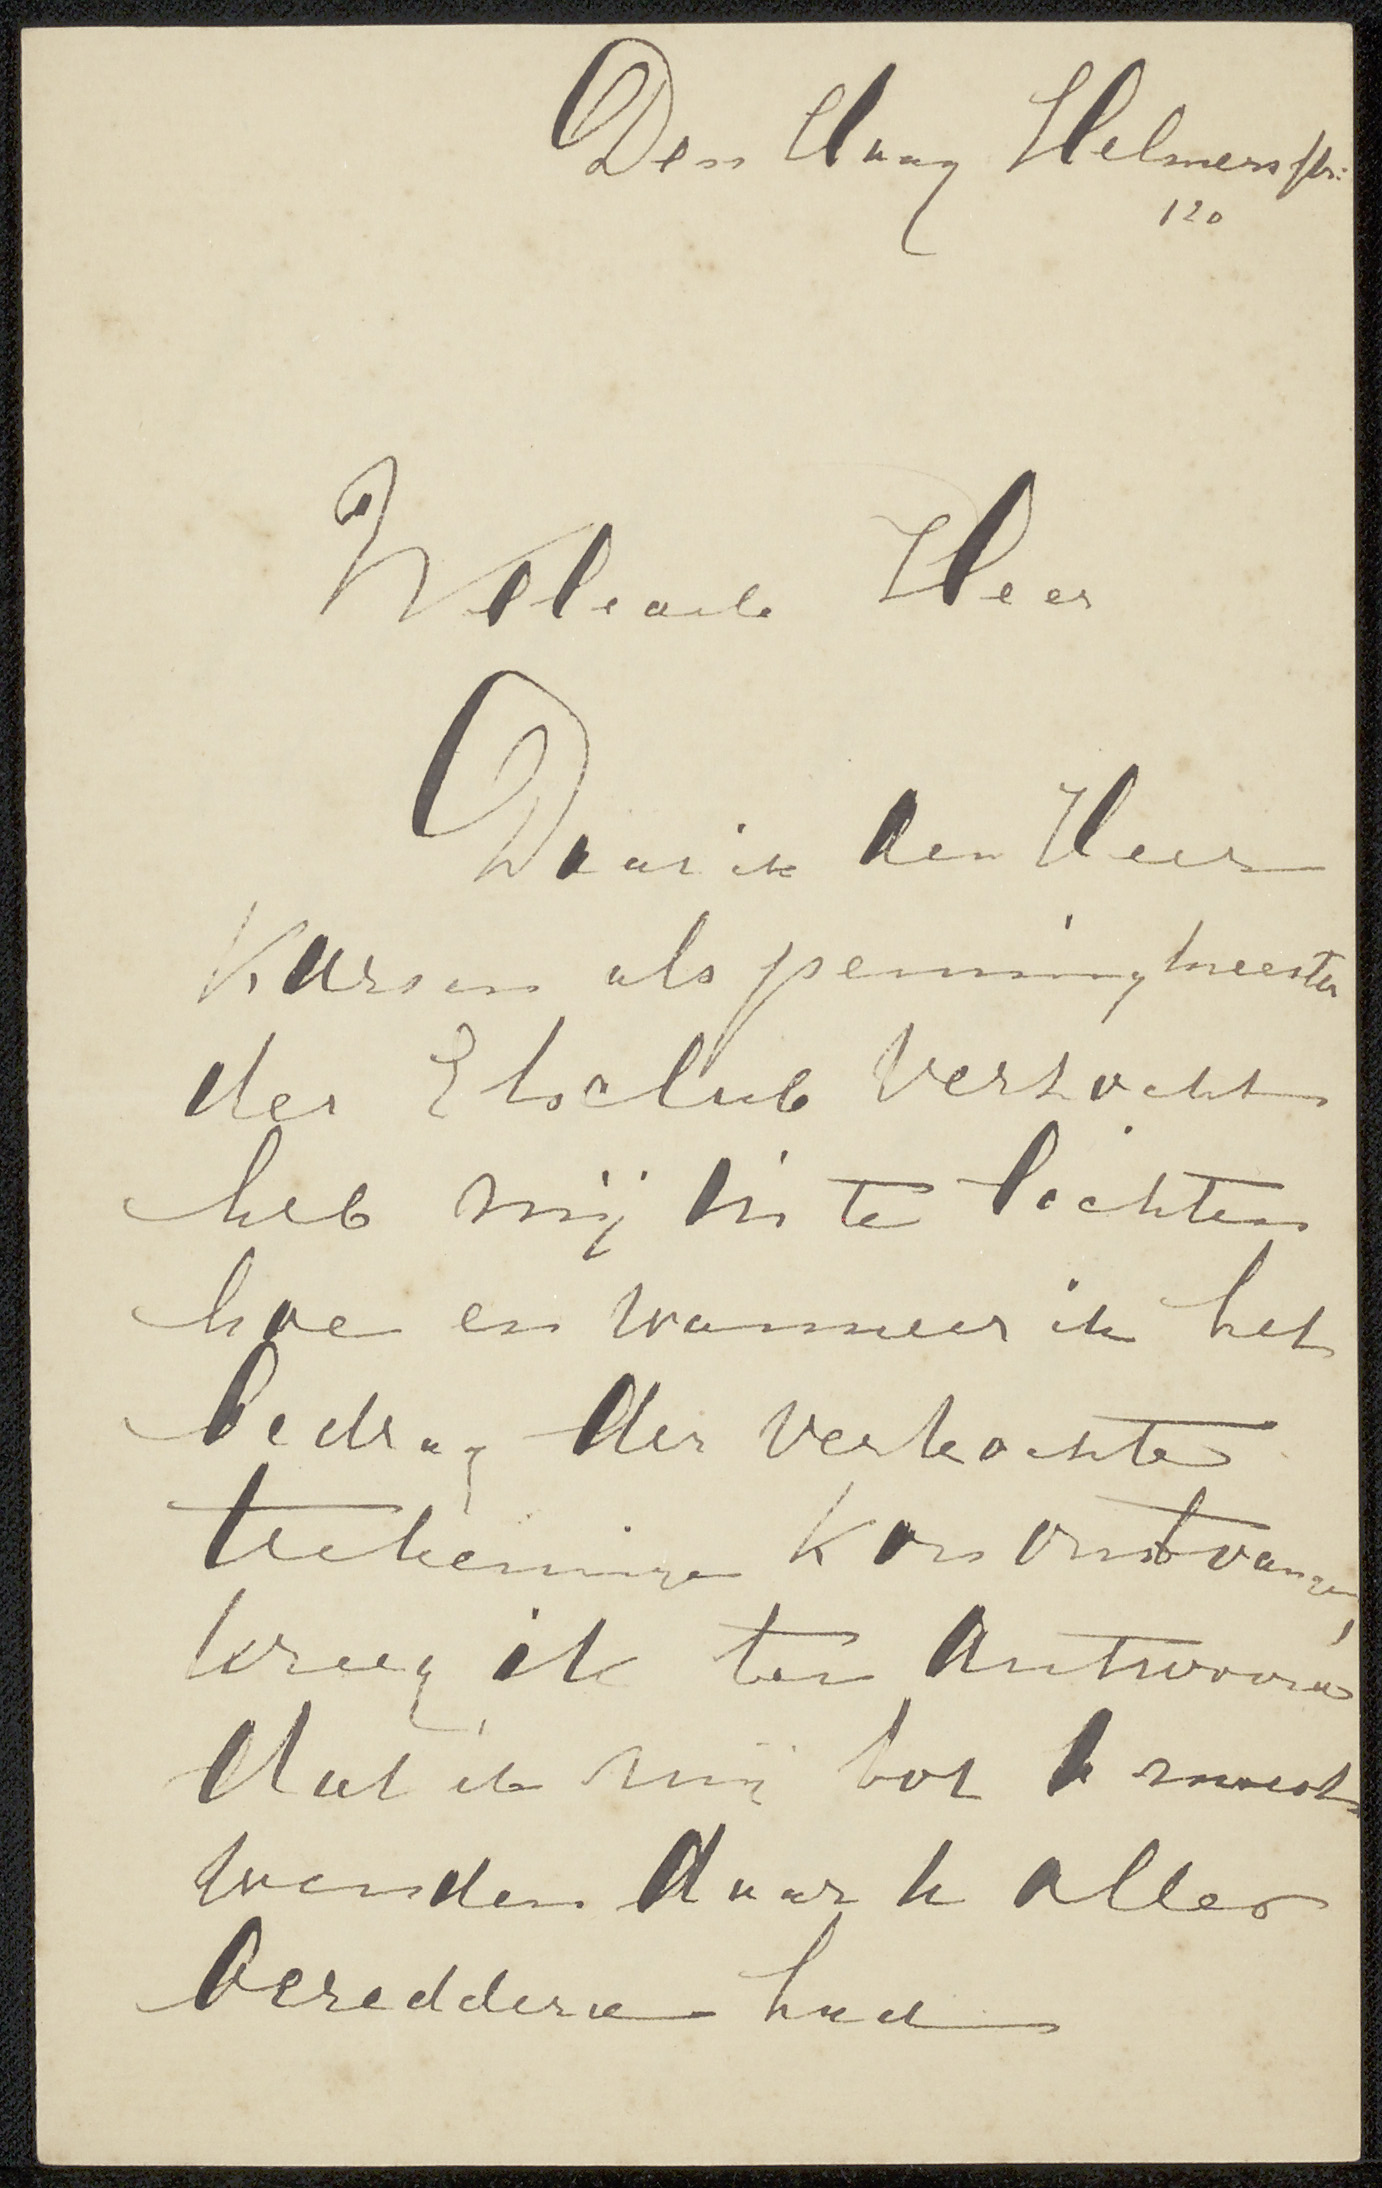 Den Haag Helmersstr:
120
WelEdele Heer
Daar ik den Heer
Karsen als penningmeester
der Etsclub verzocht
heb mij in te lichten
hoe en wanneer ik het
bedrag der verkochte
teekeningen kon ontvangen,
kreeg ik ten antwoord
dat ik mij tot U moest
wenden daar U alles
beredderd had